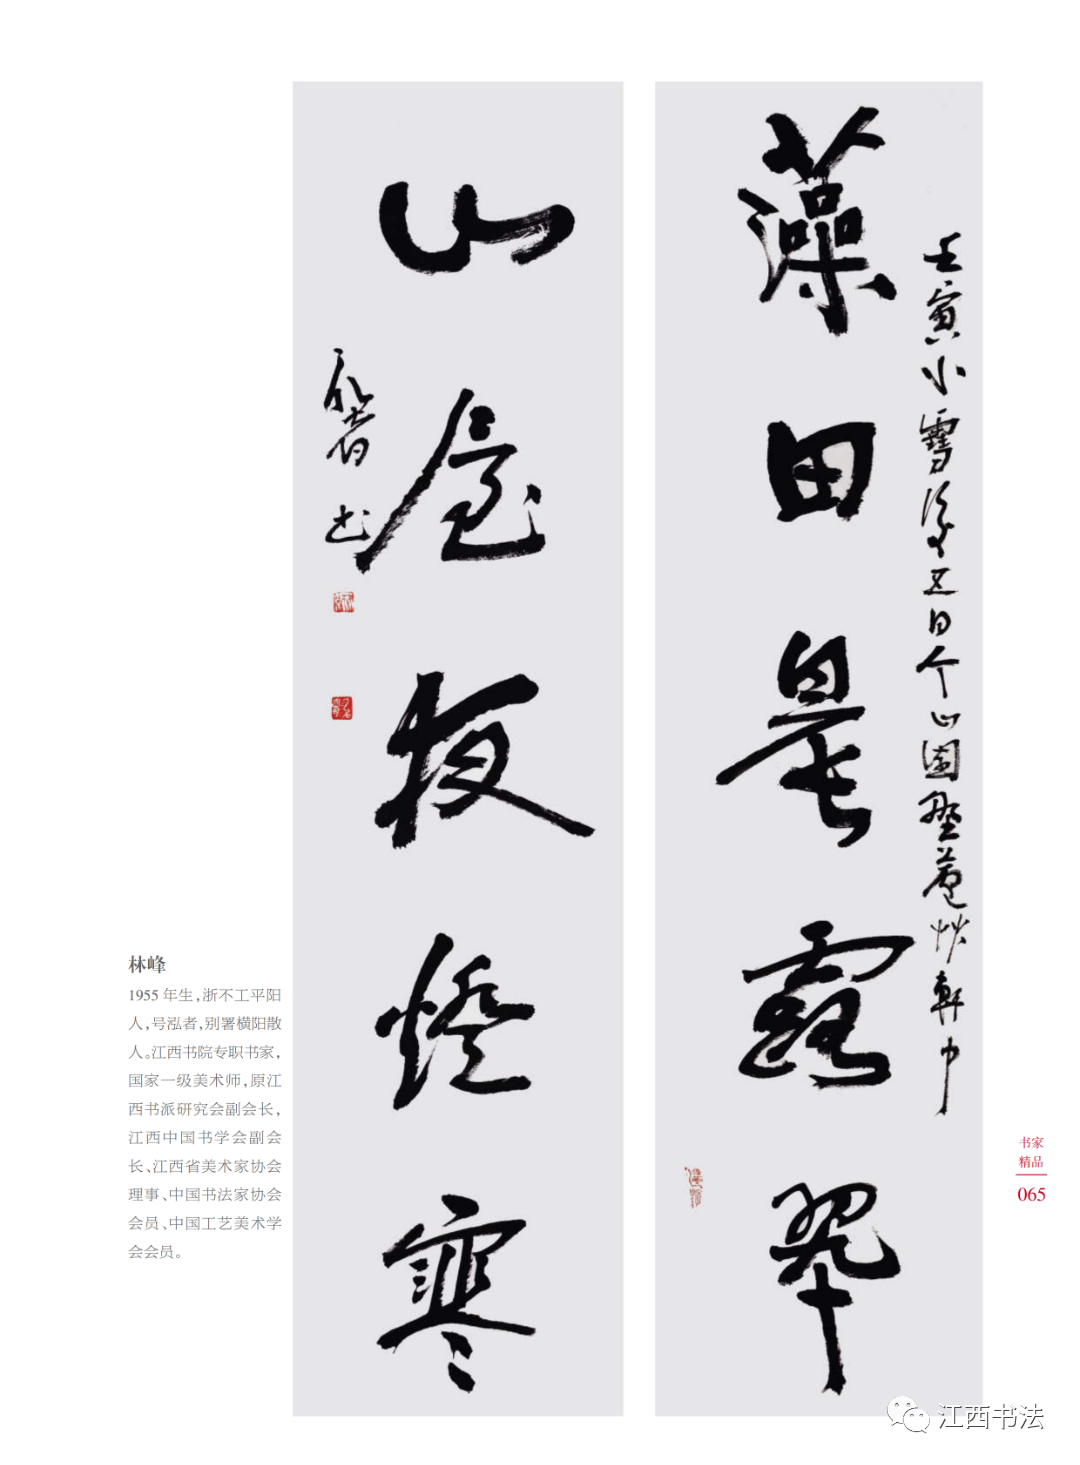 藻田晨露翠
壬寅小雪後五日个山園 軒中
山屋夜燈寒
泓者书
林峰
1955 年生，浙不工平阳
人，号泓者，别署横阳散
人。江西书院专职书家，
国家一级美术师，原江
西书派研究会副会长，
江西中国书学会副会
长、江西省美术家协会
理事、中国书法家协会
会员、中国工艺美术学
会会员。
书家
精品
065
江西书法